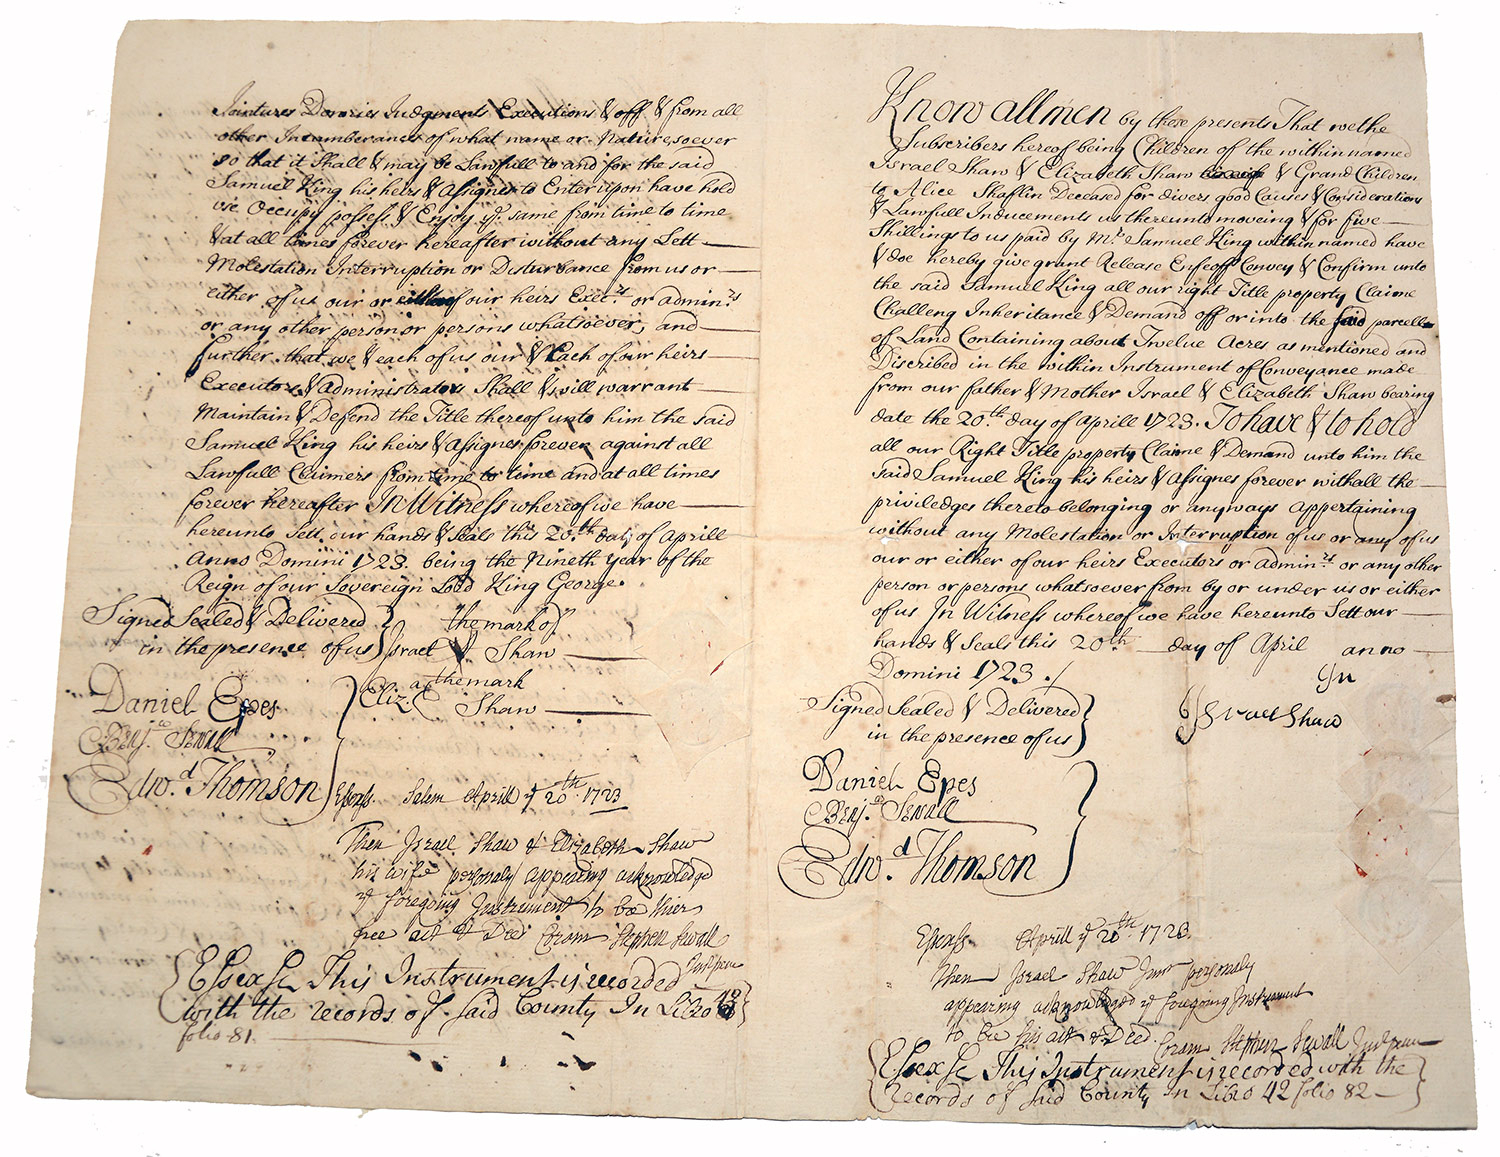 Jointures Dowries Judgments Executions & off & from all
other Incumberances of what name or Nature soever
so that it Shall & may be Lawfull to and for the said
Samuel King his heirs & Assignes to Enter upon have hold
use Occupy possess & Enjoy ye. same from time to time
& at all times forever hereafter without any Lett
Molestation Interruption or Disturbance from us or
either of us our or either of our heirs Execrs. or adminrs
or any other person or persons whatsoever, and
further that we & each of us our & Each of our heirs
Executors & administrators Shall & will warrant
Maintain & Defend the Title thereof unto him the said
Samuel King his heirs & Assignes forever against all
Lawfull Claimers from time to time and at all times
forever hereafter In Witness whereof we have
hereunto Sett our hands & Seals this 20th day of Aprill
Anno Domini 1723. being the Nineth Year of the
Reign of our Sovereign Lord King George.
Signed Sealed & Delivered
in the presence of us
the mark of
Israel Shaw
the mark
Eliz. Shaw
Daniel Epes
Benja. Sewall
Edwd. Thomson
Essex ss. Salem Aprill ye 20th. 1723
Then Israel Shaw & Elizabeth Shaw
his wife personaly appearing acknowledged
ye foregoing Instrument to be their
free act & Deed Coram Stephen Sewall
Just peace
Essex Sc This Instrument is recorded
with the records of Said County In Libro 42
folio 81.
Know all men by these presents That we the
Subscribers hereof being Children of the within named
Israel Shaw & Elizabeth Shaw & Grand Children
to Alice Shafflin Deceased for divers good Causes & Considerations
& Lawfull Inducements us thereunto moveing & for five
Shillings to us paid by Mr. Samuel King within named have
& doe hereby give grant Release Enfeoff Convey & Confirm unto
the said Samuel King all our right Title property Claime
Challeng Inheritance & Demand off or into the said parcell
of Land Containing about Twelve Acres as mentioned and
Discribed in the within Instrument of Conveyance made
from our father & Mother Israel & Elizabeth Shaw bearing
date the 20th. day of Aprill 1723. To have & to hold
all our Right Title property Claime & Demand unto him the
said Samuel King his heirs & Assignes forever with all the
priviledges thereto belonging or anyways Appertaining
without any Molestation or Interruption of us or any of us
our or either of our heirs Executors or Adminrs. or any other
person or persons whatsoever from by or under us or either
of us In Witness whereof we have hereunto Sett our
hands & Seals this 20th day of April anno
Domini 1723.
Jn
Signed Sealed & Delivered
in the presence of us
Israel Shaw
Daniel Epes
Benja. Sewall
Edwd. Thomson
Essex ss. Aprill ye 20th. 1723.
Then Israel Shaw Junr personaly
appearing acknowledged ye foregoing Instrument
to be his act & Deed. Coram Stephen Sewall Just peace
Essex Sc This Instrument is recorded with the
records of Said County In Libro 42 folio 82